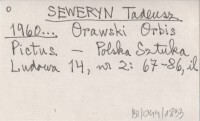 SEWERYN Tadeusz
1960... Orawski Orbis
Pictus – Polska Sztuka
Ludowa 14, nr 2: 67-86, il